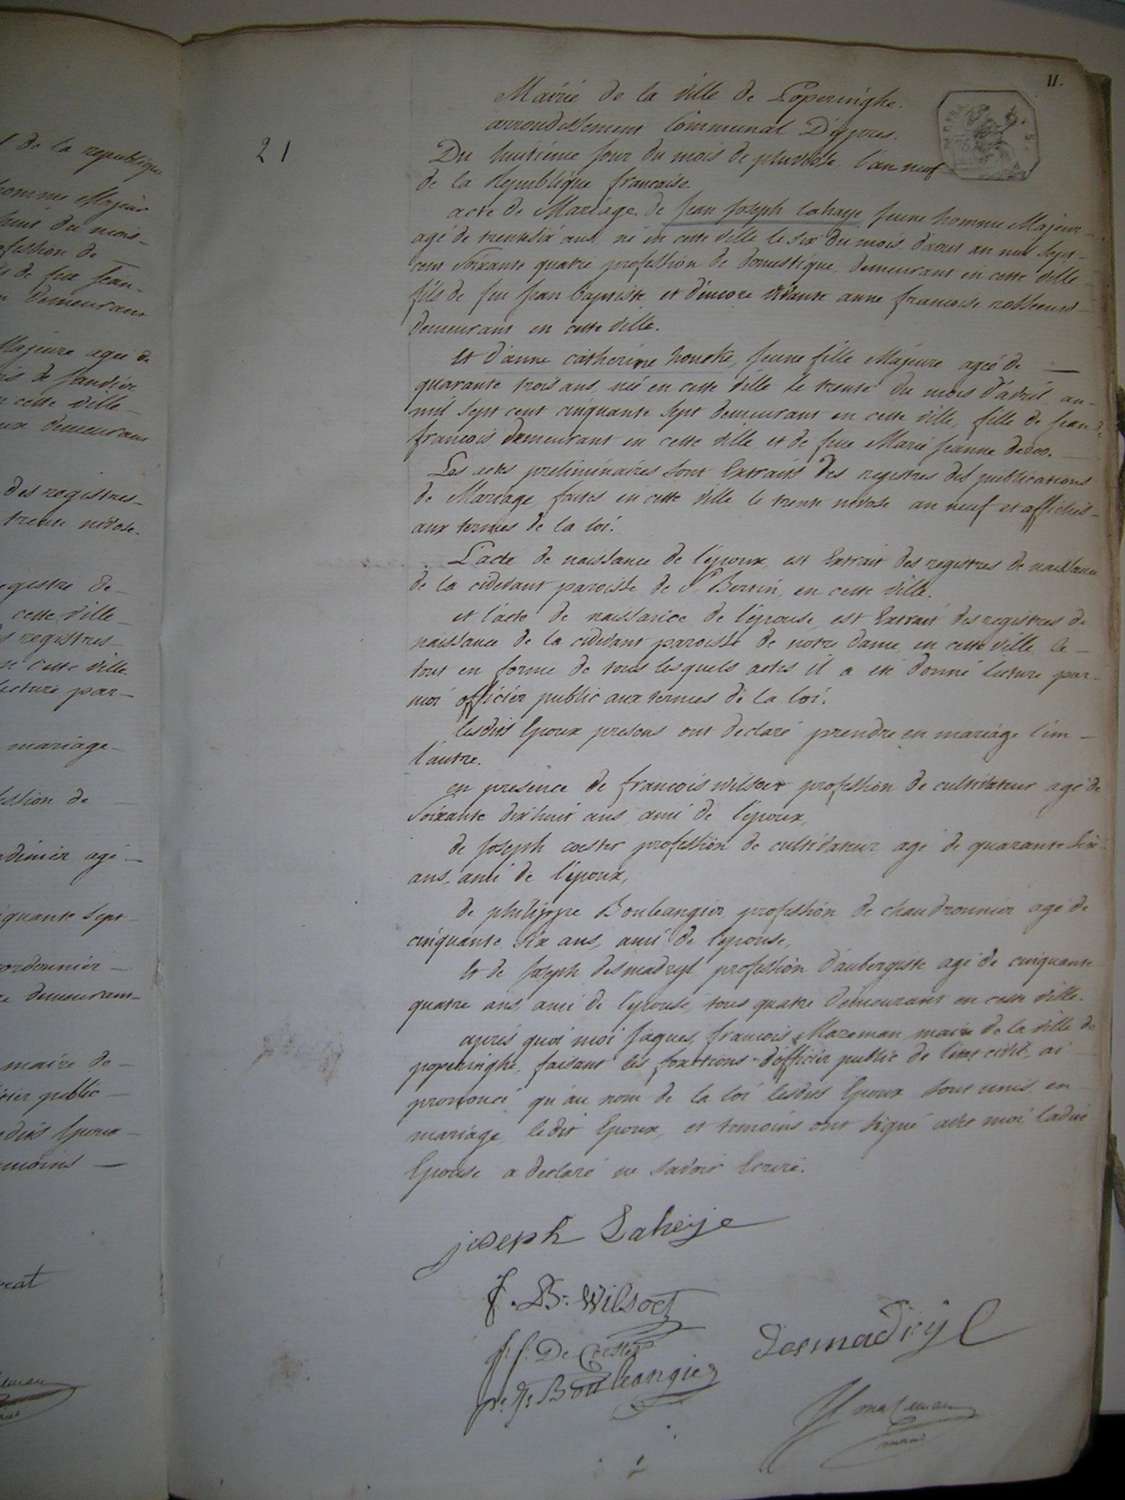 l de la republique
homme Majeur
huit du mois-
ofession de
de feu Jean-
demeurant
Majeure agée de
cette ville-
demeurant
des registres-
trente nivose.
egistre de-
cette ville-
registres-
cette ville
lecture par-
mariage-
ession de
agé-
quante sept-
cordonnier-
demeurant-
maire de-
icier public-
dits Epoux-
temoins-
II.
21
Mairie de la ville de Poperinghe.
arrondissement Communal D'ypres.
Du huitieme jour du mois de pluviose l'an neuf
de la Republique francaise
acte de Mariage de Jean Joseph Lahaye Jeune homme Majeur-
agé de trentesix ans, né en cette ville le six du mois daout an mil sept-
cent soixante quatre profession de domestique, demeurant en cette ville-
fils de feu Jean baptiste et d'encore vivante anne francoise
demeurant en cette ville.
Et d'anne catherine houcke, Jeune fille Majeure agée de
quarante trois ans, née en cette ville le trente du mois d'avril an-
mil sept cent cinquante sept demeurant en cette ville, fille de Jean
francois demeurant en cette ville et de feue Marie Jeanne
Les actes preliminaires sont Extraits des registres des publications
de Mariage faites en cette ville le trente nivose an neuf et affichés-
aux termes de la loi.
L'acte de naissance de l'époux est Extrait des registres de naissance
de la cidevant paroisse de St Bertin, en cette ville.
et l'acte de naissance de l'épouse est Extrait des registres de
naissance de la cidevant paroisse de notre dame, en cette ville le-
tout en forme de tous lesquels actes il a été donné lecture par-
moi officier public aux termes de la loi.
lesdits Epoux presens ont declaré prendre en mariage l'un-
l'autre.
en presence de francois wilsoet profession de cultivateur agé de
soixante dixhuit ans, ami de l'époux,
de Joseph coester profession de cultivateur agé de quarante six-
ans, ami de l'époux,
de philippe Boulangier profession de chaudronnier agé de
cinquante six ans, ami de l'epouse,
Et de Joseph desmadryl profession d'aubergiste agé de cinquante
quatre ans, ami de l'epouse, tous quatre demeurant en cette ville.
après quoi moi Jaques francois Mazeman, maire de la ville de
poperinghe, faisant les fonctions d'officier public de l'etat civil, ai
prononcé qu'au nom de la loi lesdits Epoux sont unis en
mariage, ledit Epoux, et temoins ont signé avec moi ladite
Epouse a declaré ne savoir Ecrire.
joseph Laheije
f. B. Wilsoet
j. f. De Coester
desmadryl
Boulangier
Mazeman
maire